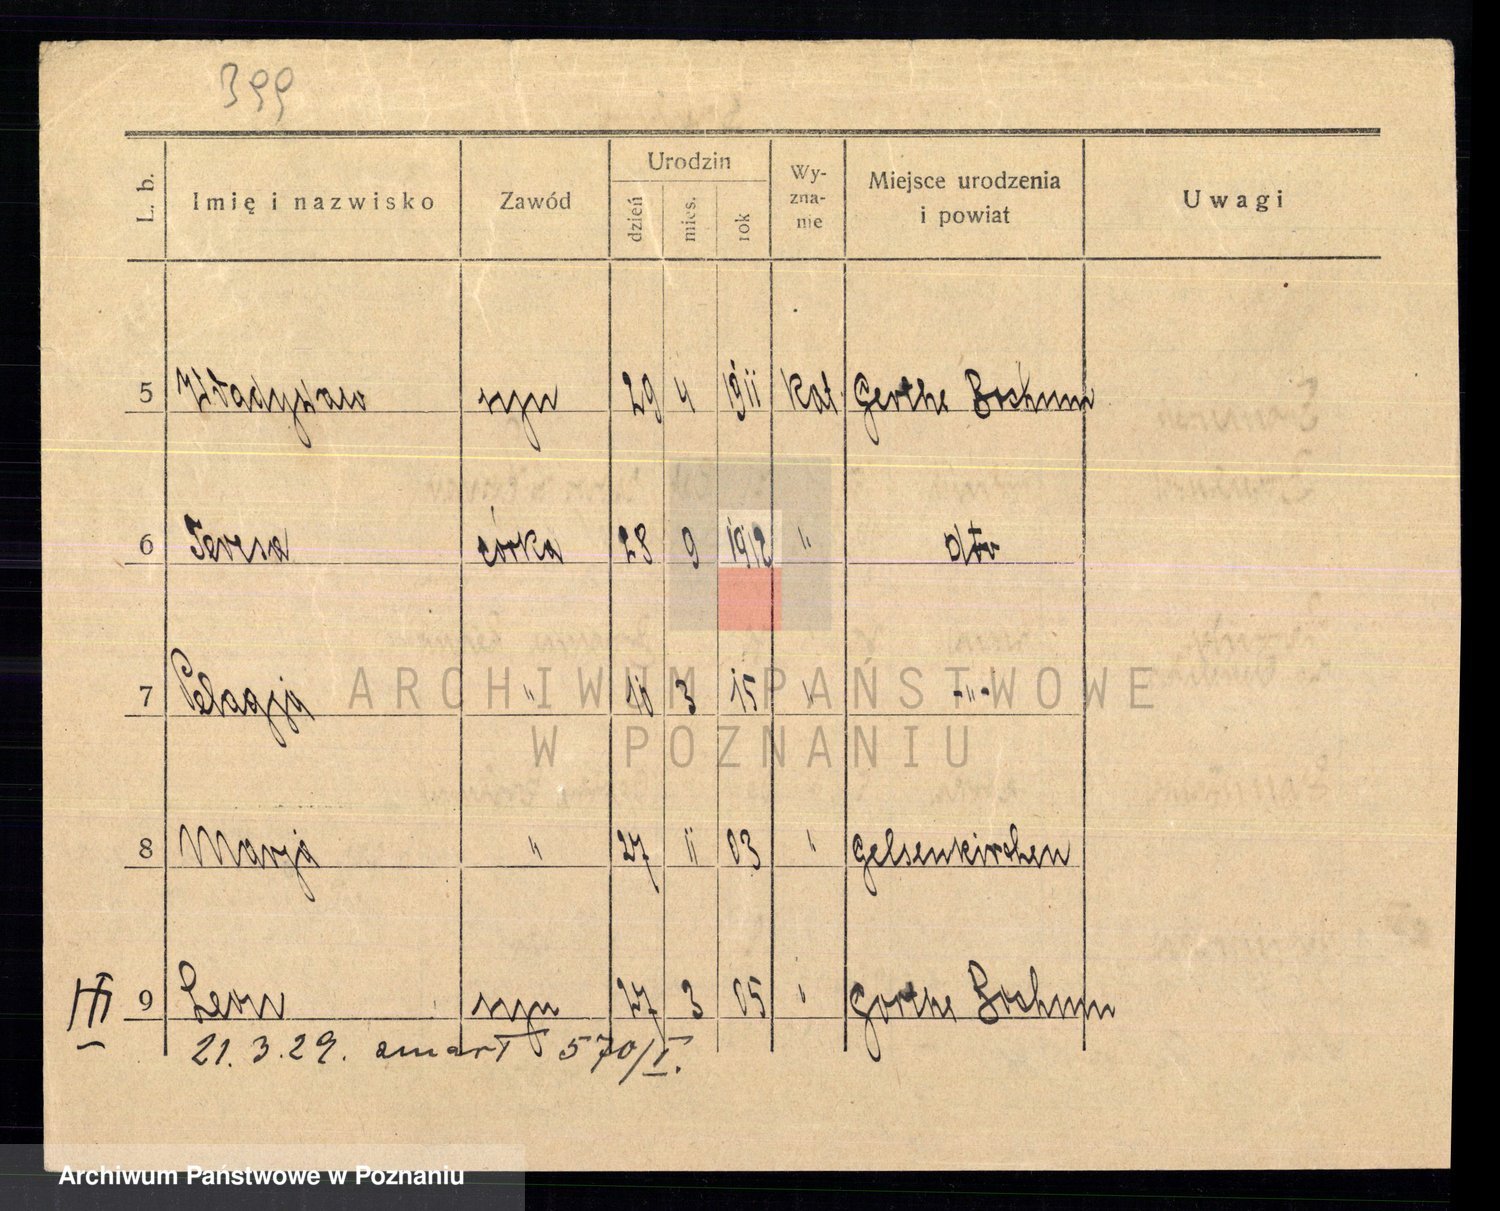 399
L. b. Imię i nazwisko Zawód Urodzin dzień mies. rok Wy-zna-nie Miejsce urodzenia i powiat Uwagi
5 Władysław syn 29 4 1911 Kat Gerthe Bochum
6 Teresa córka 28 9 1912 " dto
7 Pelagja " 3 15 " -"-
8 Marja " 27 11 03 " Gelsenkirchen
9 Leon syn 27 3 05 " Gerthe Bochum
21.3.29. zmarł 570/I.
ARCHIWUM PAŃSTWOWE
W POZNANIU
Archiwum Państwowe w Poznaniu